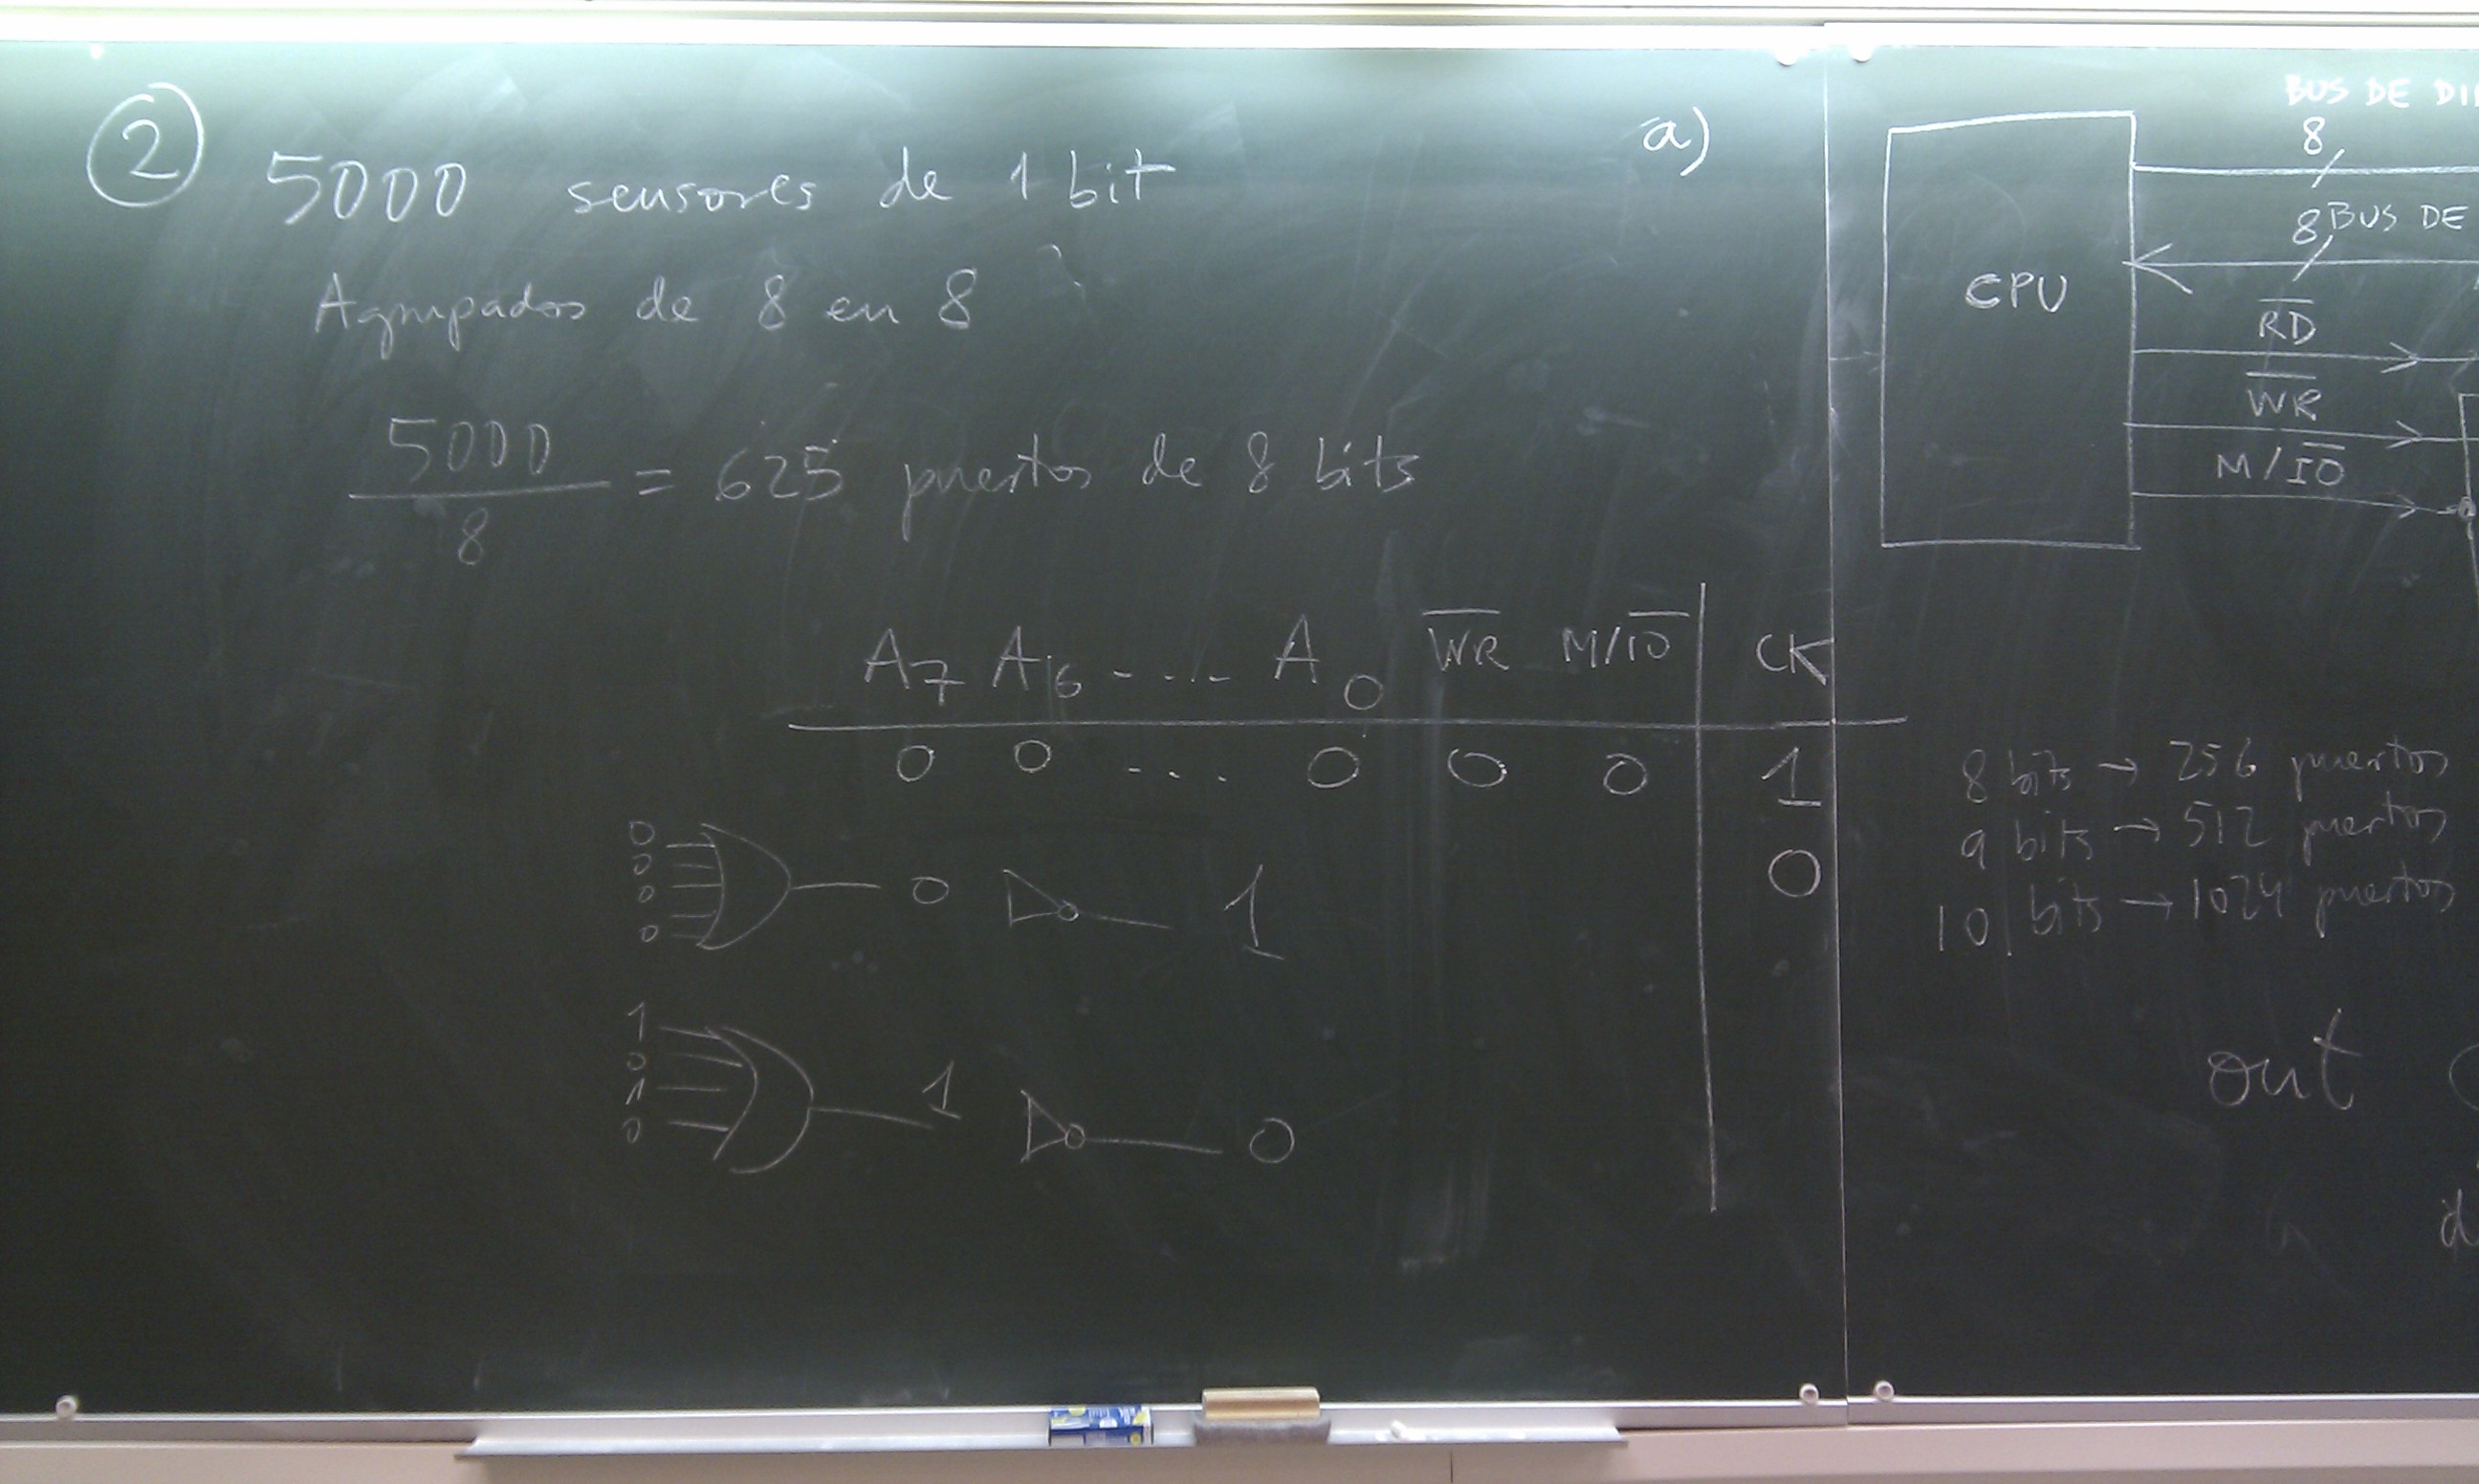 2 5000 sensores de 1 bit
Agrupados de 8 en 8
5000
8
= 625 puertos de 8 bits
A7 A6 ..... A0 W̅R̅ M/I̅O̅ CK
0 0 ... 0 0 0 1
0
0
0
0
0
0 1
1
0
1
0
1 0
a)
BUS DE DI
8
BUS DE
8
CPU
R̅D̅
W̅R̅
M/I̅O̅
8 bits → 256 puertos
9 bits → 512 puertos
10 bits → 1024 puertos
out
d